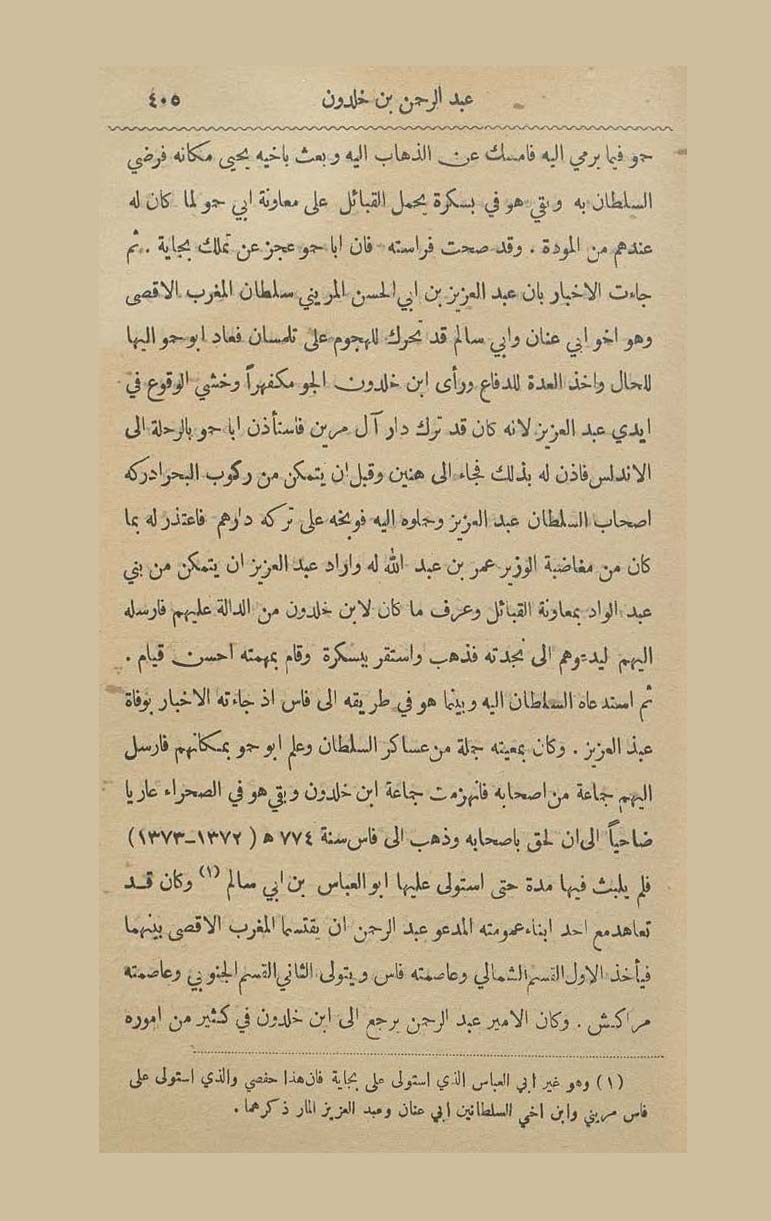 عبد الرحمن بن خلدون ٤٠٥
حمو فيما يرمي اليه فامسك عن الذهاب اليه وبعث باخيه يحيى مكانه فرضي
السلطان به وبقي هو في بسكرة يحمل القبائل على معاونة ابي حمو لما كان له
عندهم من المودة . وقد صحت فراسته فان ابا حمو عجز عن تملك بجاية . ثم
جاءت الاخبار بان عبد العزيز بن ابي الحسن المريني سلطان المغرب الاقصى
وهو اخو ابي عنان وابي سالم قد تحرك للهجوم على تلمسان فعاد ابو حمو اليها
للحال واخذ العدة للدفاع ورأى ابن خلدون الجو مكفهراً وخشي الوقوع في
ايدي عبد العزيز لانه كان قد ترك دار آل مرين فاستأذن ابا حمو بالرحلة الى
الاندلس فاذن له بذلك فجاء الى هنين وقبل ان يتمكن من ركوب البحر ادركه
اصحاب السلطان عبد العزيز وحملوه اليه فوبخه على تركه دارهم فاعتذر له بما
كان من مغاضبة الوزير عمر بن عبد الله له واراد عبد العزيز ان يتمكن من بني
عبد الواد بمعاونة القبائل وعرف ما كان لابن خلدون من الدالة عليهم فارسله
اليهم ليدعوهم الى نجدته فذهب واستقر ببسكرة وقام بمهمته احسن قيام .
ثم استدعاه السلطان اليه وبينما هو في طريقه الى فاس اذ جاءته الاخبار بوفاة
عبد العزيز . وكان بمعيته جملة من عساكر السلطان وعلم ابو حمو بمكانهم فارسل
اليهم جماعة من اصحابه فانهزمت جماعة ابن خلدون وبقي هو في الصحراء عاريا
ضاحياً الى ان لحق باصحابه وذهب الى فاس سنة ٧٧٤ ه (١٣٧٢-١٣٧٣)
فلم يلبث فيها مدة حتى استولى عليها ابو العباس بن ابي سالم (١) وكان قد
تعاهد مع احد ابناء عمومته المدعو عبد الرحمن ان يقتسما المغرب الاقصى بينهما
فيأخذ الاول القسم الشمالي وعاصمته فاس ويتولى الثاني القسم الجنوبي وعاصمته
مراكش . وكان الامير عبد الرحمن يرجع الى ابن خلدون في كثير من اموره
(١) وهو غير ابي العباس الذي استولى على بجاية فان هذا حفصي والذي استولى على
فاس مريني وابن اخي السلطانين ابي عنان وعبد العزيز المار ذكرهما .